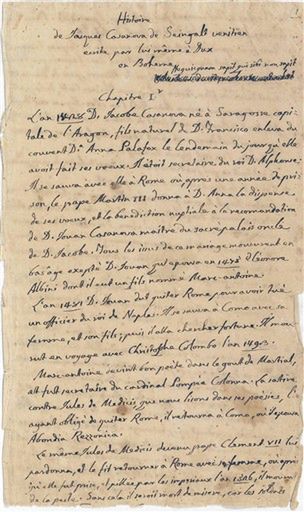 Histoire
de Jacques Casanova de Seingalt venitien
ecrite par lui même à Dux
en Boheme
Nequicquam sapit qui sibi non sapit
Chapitre I.r
L'an 1428 D. Jacobe Casanova né à Saragosse capi-
tale de l'Aragon, fils naturel de D. Francisco enleva du
couvent D. Anna Palafox le lendemain du jour qu'elle
avoit fait ses voeux. Il étoit secretaire du roi D. Alphonse.
Il se sauva avec elle à Rome où après une année de pri-
son, le pape Martin III donna à D. Anna la dispense
de ses voeux, et la benediction nuptiale à la recomandation
de D. Jouan Casanova maître du sacré palais oncle
de D. Jacobe. Tous les issus de ce mariage moururent en
bas âge excepté D. Jouan qui epousa en 1475 Eleonore
Albini dont il eut un fils nommé Marc-antoine.
L'an 1481 D. Jouan dut quiter Rome pour avoir tué
un officier du roi de Naples. Il se sauva à Como avec sa
femme, et son fils; puis il alla chercher fortune. Il mou-
rut en voyage avec Christophe Colombo l'an 1493.
Marc-antoine devint bon poète dans le gout de Martial,
et fut secretaire du cardinal Pompée Colonna. La satire
contre Jules de Medicis que nous lisons dans ses poesies, l'
ayant obligé de quiter Rome, il retourna à Como, où il epousa
Abondia Rezzonica.
Le même Jules de Medicis devenu pape Clement VII lui
pardonna, et le fit retourner à Rome avec sa femme, où après
qu'elle fut prise, et pillée par les imperiaux l'an 1526, il mourut
de la peste. Sans cela il seroit mort de misere, car les soldats